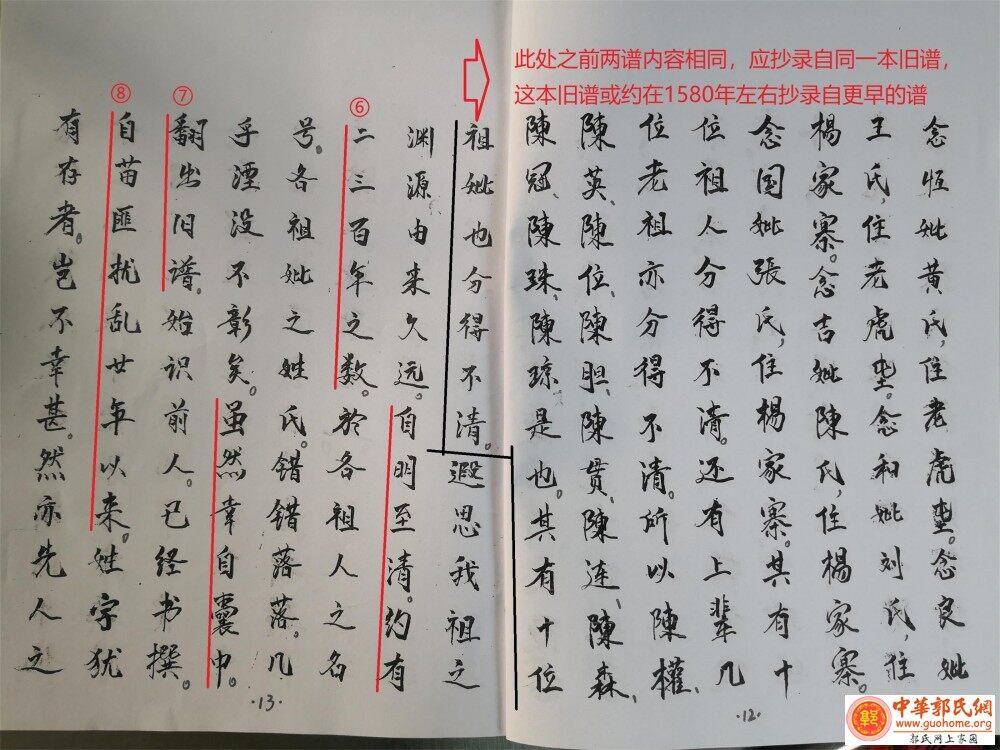 此处之前两谱内容相同，应抄录自同一本旧谱，
这本旧谱或约在1580年左右抄录自更早的谱
念恒妣黄氏，住老虎。念良妣
王氏，住老虎。念和妣刘氏，住
楊家寨。念吉妣陳氏，住楊家寨。
念国妣張氏，住楊家寨。其有十
位祖人分得不清。还有上輩几
位老祖亦分得不清。所以陳權、
陳英、陳位、陳胆、陳貫、陳連、陳森、
陳冠、陳珠、陳琼是也。其有十位
·12·
祖妣也分得不清。遐思我祖之
渊源由来久远。自明至清。约有
⑥
二三百年之数。於各祖人之名
号。各祖妣之姓氏。错错落落。几
乎湮没不彰矣。虽然幸自囊中。
⑦
翻出旧谱。始识前人。已经书撰。
⑧
自苗匪扰乱廿年以来。姓字犹
有存者。岂不幸甚。然亦先人之
·13·
中華郭氏網
www.guohome.org
郭氏网上家园